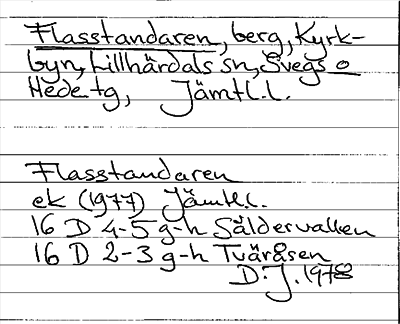 Flasstandaren, berg, Kyrk-
byn, Lillhärdals sn, Svegs o
Hede tg, Jämtl.l.
Flasstandaren
ek (1977) Jämtl.l.
16 D 4-5 g-h Såldervallen
16 D 2-3 g-h Tväråsen
D.J. 1978